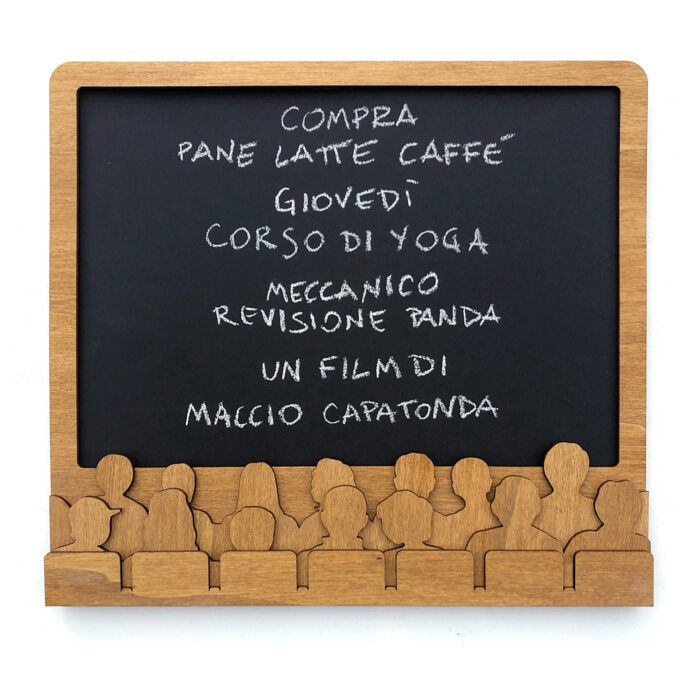 COMPRA
PANE LATTE CAFFÉ
GIOVEDÌ
CORSO DI YOGA
MECCANICO
REVISIONE PANDA
UN FILM DI
MACCIO CAPATONDA